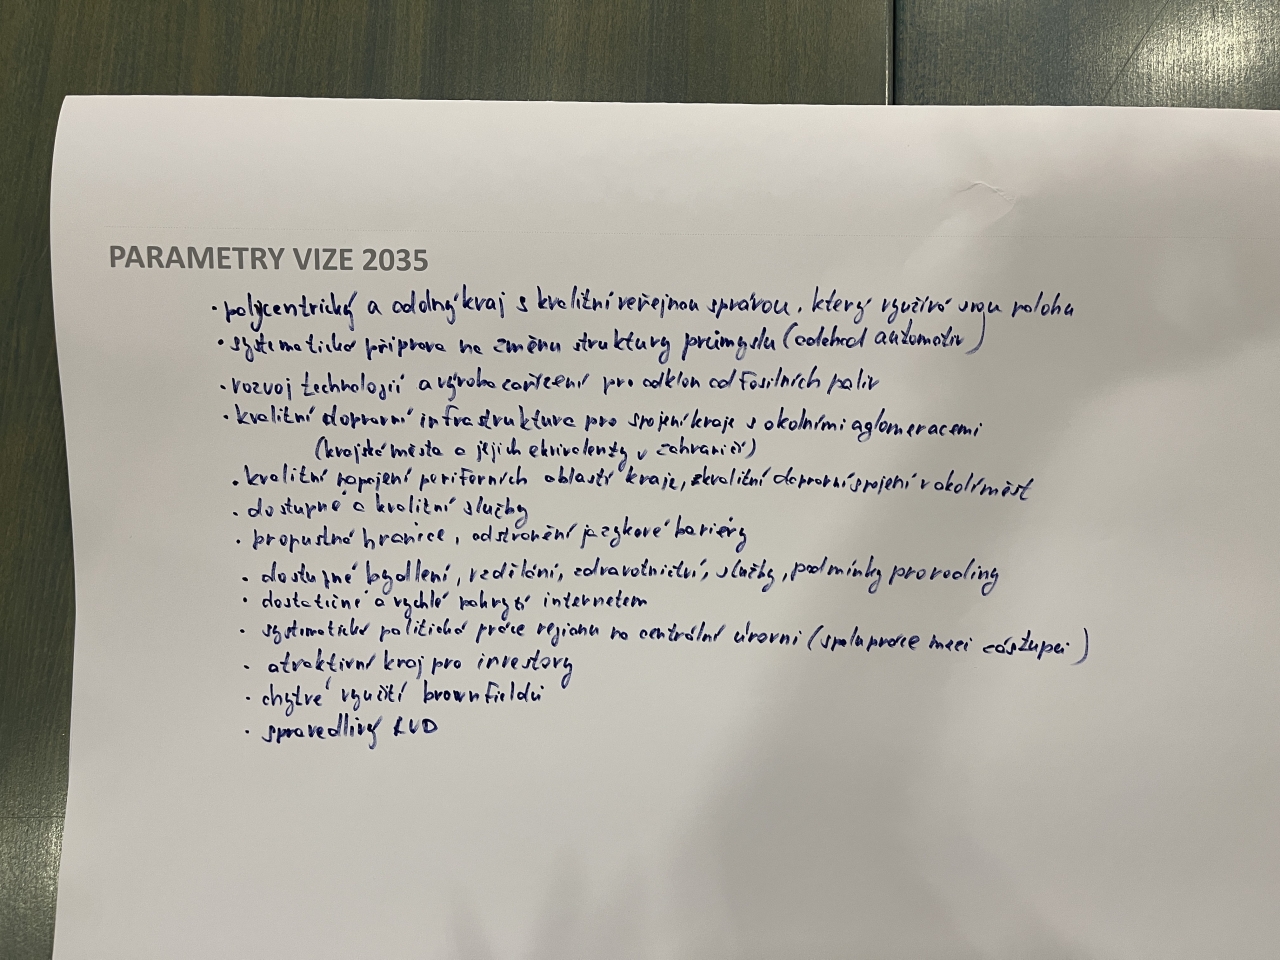 PARAMETRY VIZE 2035
· polycentrický a odolný kraj s kvalitní veřejnou správou, který využívá svou polohu
· systematická příprava na změnu struktury průmyslu (odchod automotiv)
· rozvoj technologií a výroba zařízení pro odklon od fosilních paliv
· kvalitní dopravní infrastruktura pro spojení kraje s okolními aglomeracemi
(krajská města a jejich ekvivalenty v zahraničí)
· kvalitní napojení periferních oblastí kraje, zkvalitní dopravní spojení v okolí měst
· dostupné a kvalitní služby
· propustná hranice, odstranění jazykové bariéry
· dostupné bydlení, vzdělání, zdravotnictví, služby, podmínky pro rodiny
· dostatečné a rychlé pokrytí internetem
· systematická politická práce regionu na centrální úrovni (spolupráce mezi zástupci)
· atraktivní kraj pro investory
· chytré využití brownfieldů
· spravedlivý RUD